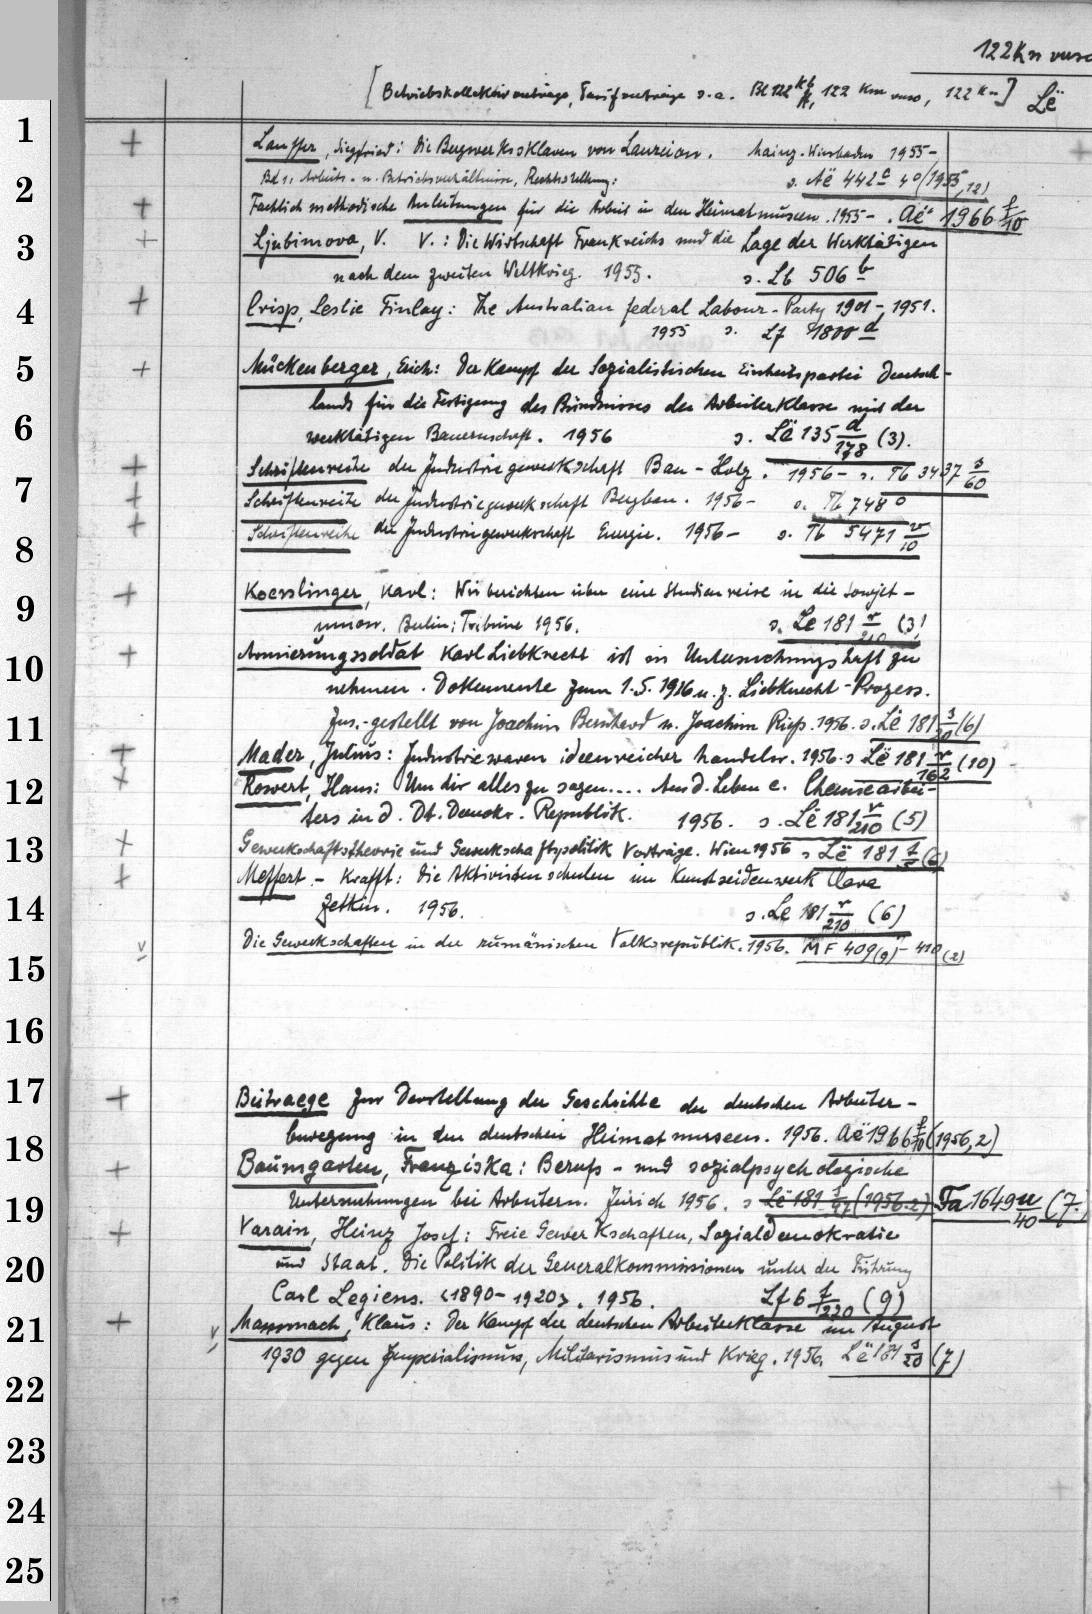 122Kn
[Betriebskollektivverträge, Tarifverträge s.a. Bl 122 122 Km 122 Kn] Lë
1 Lauffer, Siegfried: Die Bergwerkssklaven von Laureion. Mainz-Wiesbaden 1955-,
2 Bd 1, Arbeits- u. Betriebsverhältnisse, Rechtsstellung: s. Aë 442 a 4° (1955,12)
Fachlich methodische Anleitungen für die Arbeit in den Heimatmuseen. 1955-. Aë 1966 f/10
3 Ljubimova, V. V.: Die Wirtschaft Frankreichs und die Lage der Werktätigen
nach dem zweiten Weltkrieg. 1955. s. Lb 506 b
4 Crisp, Leslie Finlay: The Australian federal Labour-Party 1901-1951.
1955 s. Lf 1800 d
5 Mückenberger, Erich: Der Kampf der Sozialistischen Einheitspartei Deutsch-
lands für die Festigung des Bündnisses der Arbeiterklasse mit der
6 werktätigen Bauernschaft. 1956 s. Lë 135 d/178 (3).
Schriftenreihe der Industriegewerkschaft Bau-Holz. 1956- s. Tb 3437 s/60
7 Schriftenreihe der Industriegewerkschaft Bergbau. 1956- s. Tb 748 o
Schriftenreihe der Industriegewerkschaft Energie. 1956- s. Tb 5471 v/10
8
9 Koesslinger, Karl: Wir berichten über eine Studienreise in die Sowjet-
union. Berlin: Tribüne 1956. s. Lë 181 r/210 (3)
10 Armierungssoldat Karl Liebknecht ist in Untersuchungshaft zu
nehmen. Dokumente zum 1.5.1916 u. z. Liebknecht-Prozess.
11 Zus.-gestellt von Joachim Bernhard u. Joachim Rieß. 1956. s. Lë 181 s/20 (6)
Mader, Julius: Industriewaren ideenreicher handeln. 1956. s Lë 181 r/162 (10)
12 Roewert, Hans: Um dir alles zu sagen.... Aus d. Leben e. Chemiearbei-
ters in d. Dt. Demokr. Republik. 1956. s. Lë 181 r/210 (5)
13 Gewerkschaftstheorie und Gewerkschaftspolitik Vorträge. Wien 1956 s Lë 181 (6)
Meffert-Krafft: Die Aktivistenschulen im Kunstseidenwerk Clara
14 Zetkin. 1956. s. Lë 181 r/210 (6)
Die Gewerkschaften in der rumänischen Volksrepublik. 1956. MF 409(9)-410(2)
15
16
17 Beitraege zur Darstellung der Geschichte der deutschen Arbeiter-
18 bewegung in den deutschen Heimatmuseen. 1956. Aë 1966 f/10 (1956,2)
Baumgarten, Franziska: Berufs- und sozialpsychologische
19 Untersuchungen bei Arbeitern. Zürich 1956. s Lë 181 (1956.2) Fa 1649 u/40 (7.)
Varain, Heinz Josef: Freie Gewerkschaften, Sozialdemokratie
20 und Staat. Die Politik der Generalkommissionen unter der Führung
Carl Legiens. <1890-1920>. 1956. Lf 6 f/220 (9)
21 Mammach, Klaus: Der Kampf der deutschen Arbeiterklasse im August
1930 gegen Imperialismus, Militarismus und Krieg. 1956. Lë 181 s/20 (7)
22
23
24
25